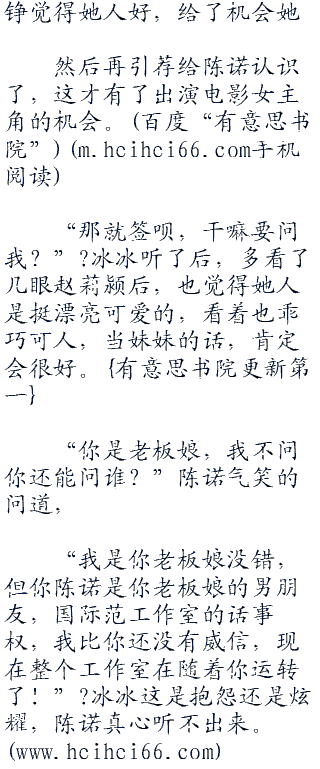 铮觉得她人好，给了机会她
然后再引荐给陈诺认识
了，这才有了出演电影女主
角的机会。(百度“有意思书
院”)(m.hcihci66.com手机
阅读)
“那就签呗，干嘛要问
我？”?冰冰听了后，多看了
几眼赵莉颍后，也觉得她人
是挺漂亮可爱的，看着也乖
巧可人，当妹妹的话，肯定
会很好。{有意思书院更新第
一}
“你是老板娘，我不问
你还能问谁？”陈诺气笑的
问道，
“我是你老板娘没错，
但你陈诺是你老板娘的男朋
友，国际范工作室的话事
权，我比你还没有威信，现
在整个工作室在随着你运转
了！”?冰冰这是抱怨还是炫
耀，陈诺真心听不出来。
(www.hcihci66.com)